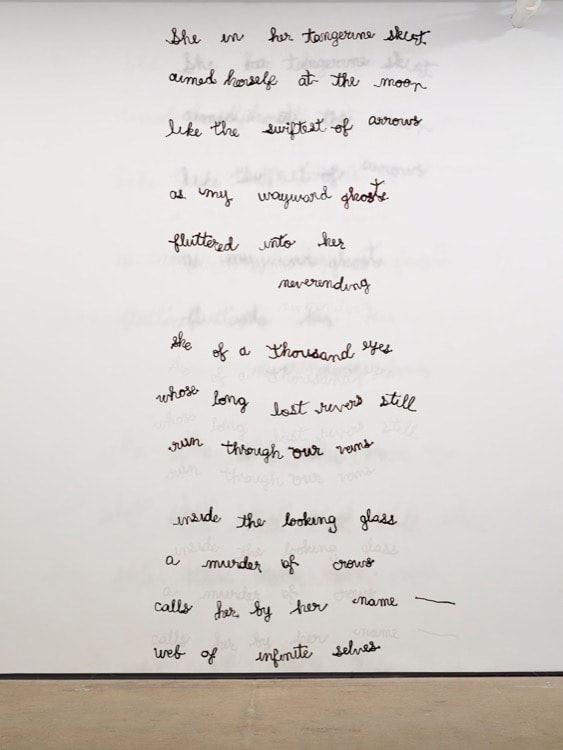 She in her tangerine skirt
aimed herself at the moon
like the swiftest of arrows
as my wayward ghosts
fluttered into her
neverending
she of a thousand eyes
whose long lost rivers still
run through our veins
inside the looking glass
a murder of crows
calls her by her name —
web of infinite selves